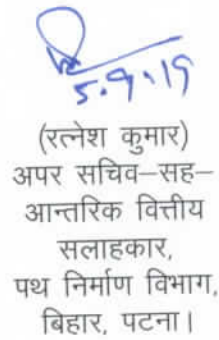 5.9.19
(रत्नेश कुमार)
अपर सचिव–सह–
आन्तरिक वित्तीय
सलाहकार,
पथ निर्माण विभाग,
बिहार, पटना।